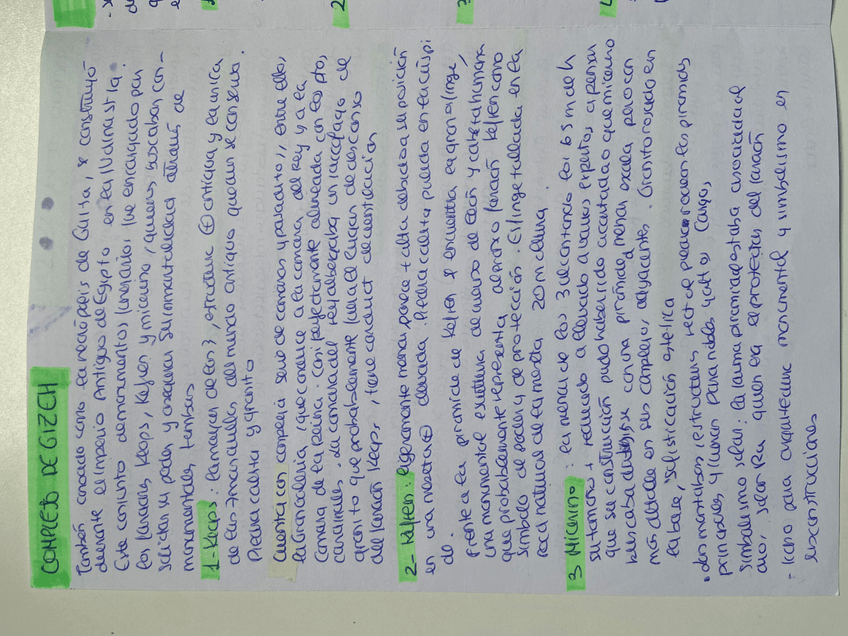 COMPLEJO DE GIZEH
También conocido como la necrópolis de Guiza, se construyó
durante el Imperio Antiguo de Egipto en la IV dinastía.
Este conjunto de monumentos funerarios fue encargado por
los faraones Keops, Kefren y micerino, quienes buscaban con-
solidar su poder y asegurar su inmortalidad através de
monumentales tumbas
1- Keops: La mayor de las 3, estructura ⊕ antigua y la única
de las 7 maravillas del mundo antiguo que aun se conserva.
Piedra caliza y granito
Cuenta con compleja serie de camaras y pasadizos, entre ellos,
la Gran Galería, que conduce a la cámara del Rey y a la
Cámara de la Reina. Casi perfectamente alineada con los ptos
cardinales. La camara del rey albergaba un sarcofago de
granito que probablemente fuera el lugar de descanso
del faraón Keops, tiene conduct de ventilación
2- Kefren: ligeramente menor, parece + alta debido a su posición
en una meseta ⊕ elevada. Piedra caliza pulida en la cúspi
de.
Frente a la pirámide de Kefren se encuentra la gran esfinge,
una monumental escultura de cuerpo de León y cabeza humana
que probablemente representa al propio faraón Kefren como
símbolo de poder y de protección. Esfinge tallada en la
roca natural de la meseta 20 m altura.
3 Micerino: la menor de las 3 alcanzando los 65 m de h
su tamaño + reducido a llevado a varios expertos a pensar
que su construcción pudo haber sido acortada o que micerino
buscaba una pirámide a menor escala pero con
mas detalles en sus complejos adyacentes. Granito rosado en
la base, sofisticación estética
• Las mastabas, estructuras rect q rodean las pirámides
principales y fueron para nobles y altos cargos,
Simbolismo solar: la forma piramidal estaba asociada al
dios solar Ra quien era el protector del faraón
- Icono para arquitectura monumental y simbolismo en
sus construcciones